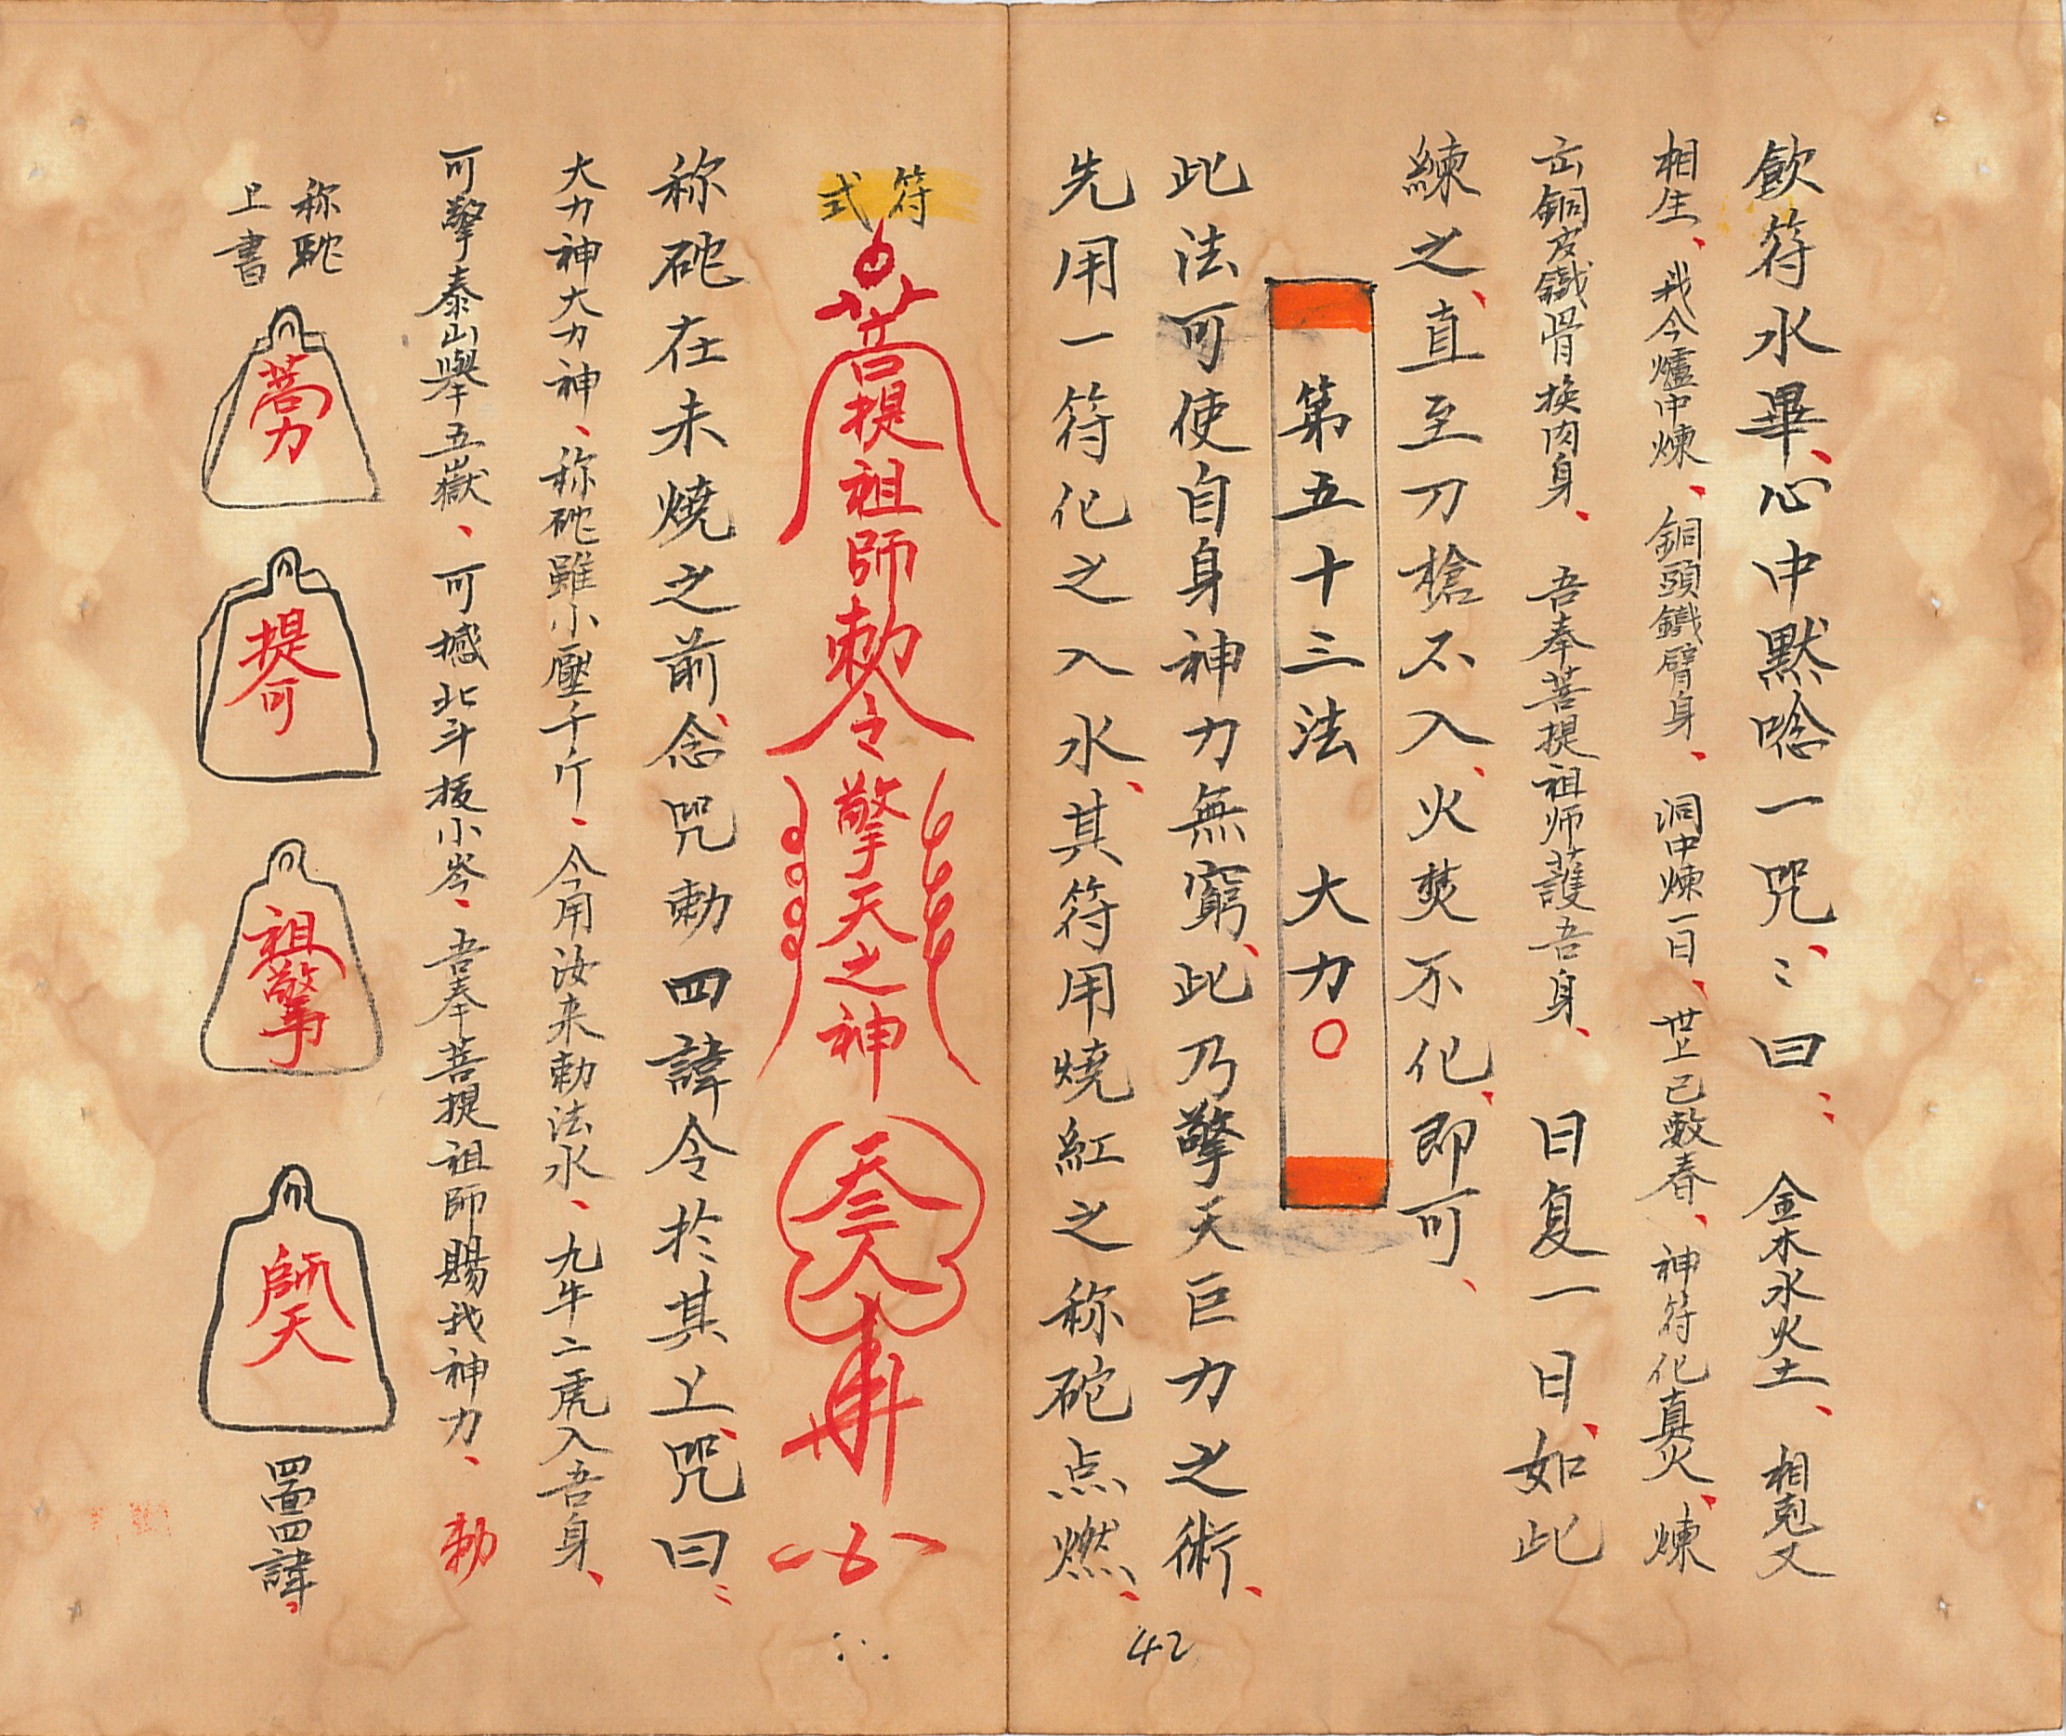 飲符水畢、心中默唸一咒、〻曰：金木水火土、相剋又
相生、我今爐中煉、銅頭鐵臂身、洞中煉一日、世上已數春、神符化真火、煉
銅皮鐵骨換肉身、吾奉菩提祖师護吾身、日复一日、如此
練之、直至刀槍不入、火焚不化、即可、
第五十三法 大力〇
此法可使自身神力無窮、此乃擎天巨力之術、
先用一符化之入水、其符用燒紅之称砣点燃、
42
符式
菩提祖師勅令擎天之神
称砣在未燒之前、念咒勅四諱令於其上、咒曰：
大力神大力神、称砣雖小壓千斤、今用汝来勅法水、九牛二虎入吾身、
可擎泰山舉五嶽、可撼北斗拔小岑、吾奉菩提祖師賜我神力、勅
称駝上書
菩力
提可
祖擎
師天
四面四諱、